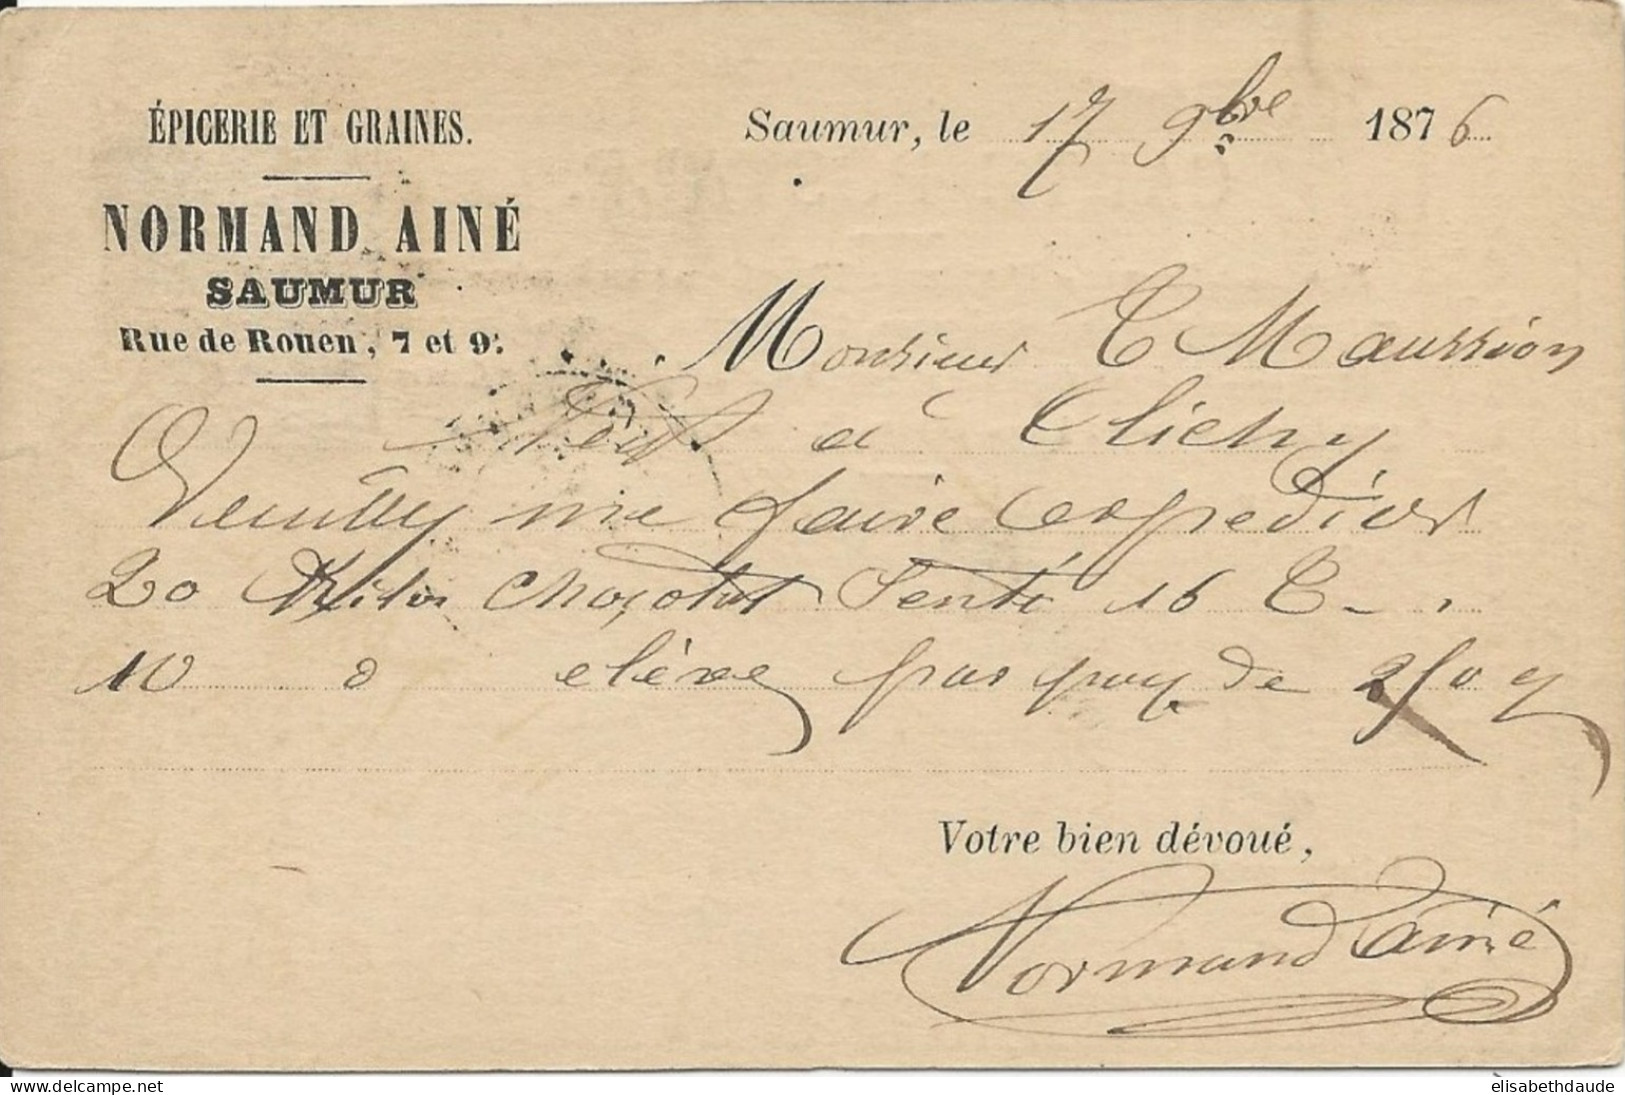 ÉPICERIE ET GRAINES.
NORMAND AINÉ
SAUMUR
Rue de Rouen, 7 et 9.
Saumur, le 17 9bre 1876
Monsieur E Maussion
à Clichy
Veuillez me faire expedier
20 Kilos Chocolat Santé 16 C
10 d elève par poids de 250 g
Votre bien dévoué,
Normand ainé
elisabethdaude